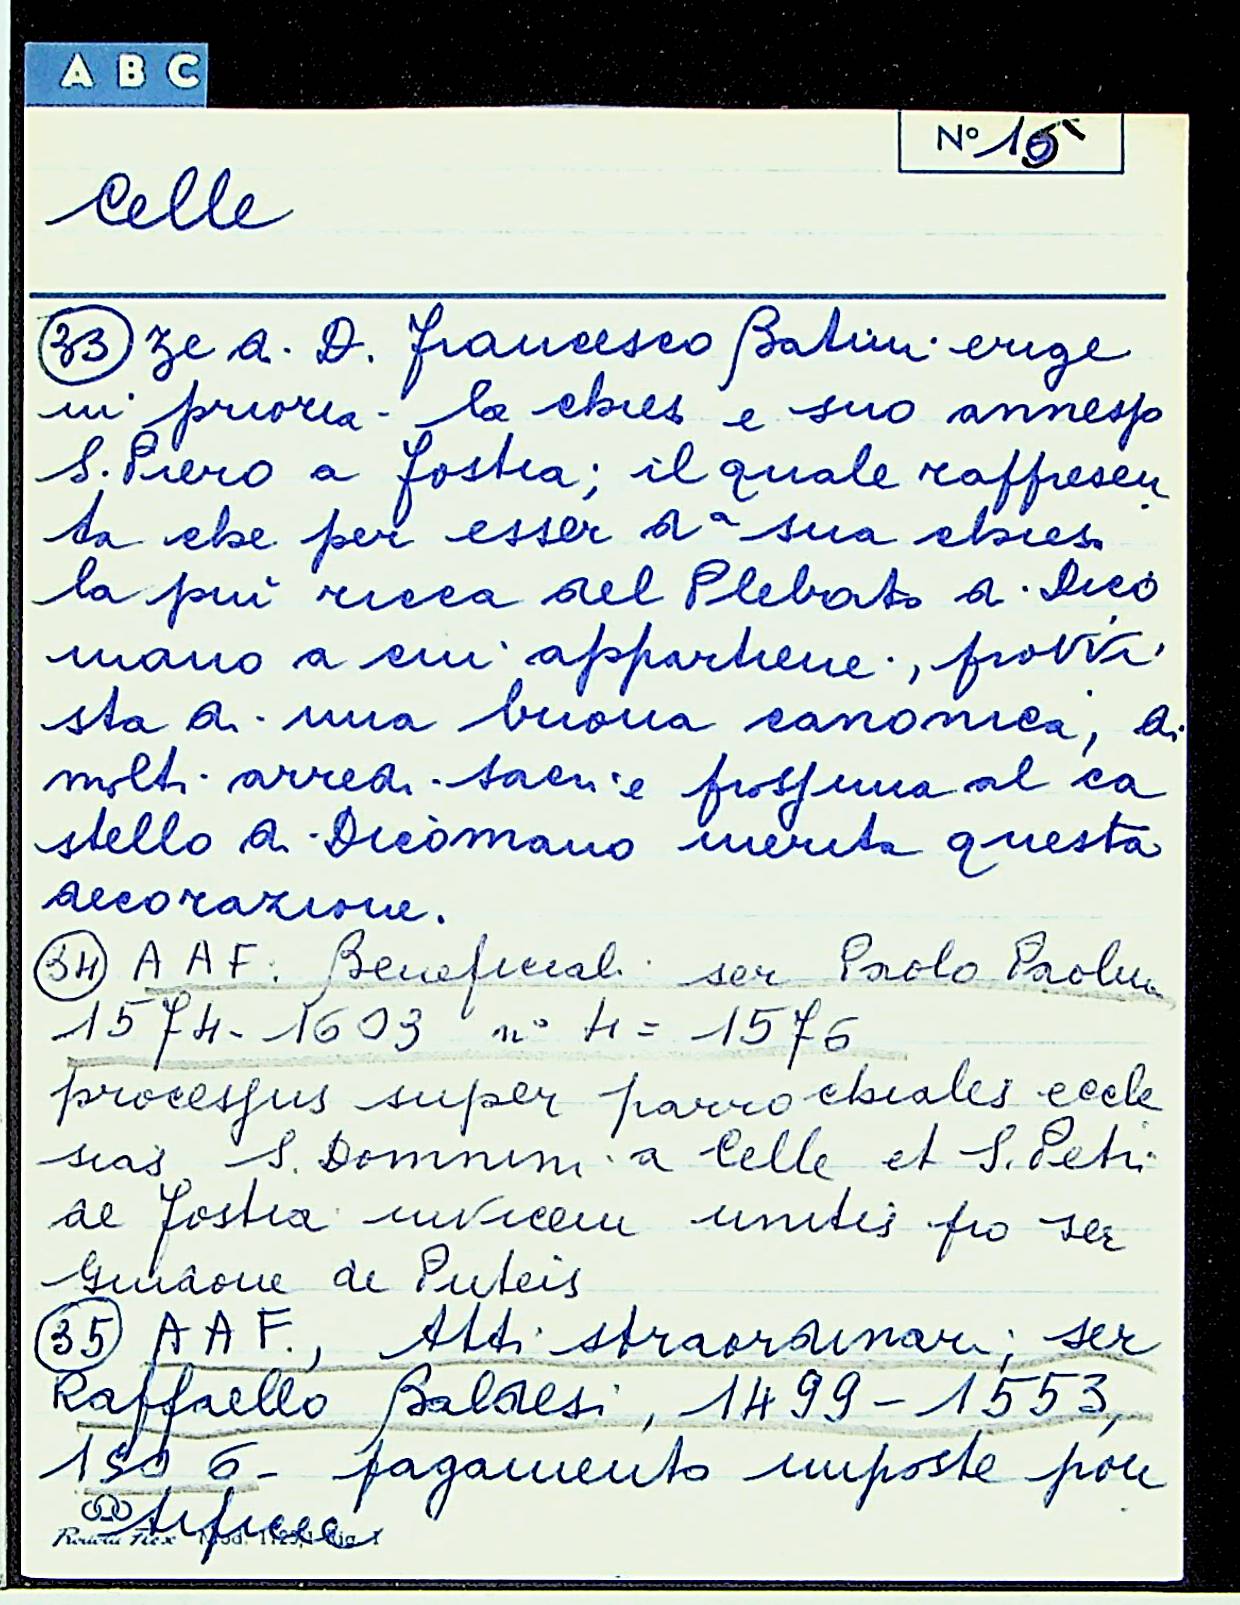 A B C
N° 15
Celle
33 ze di D. Francesco Batini erige
in prioria la chiesa e suo annesso
S. Piero a Fostia; il quale rappresen
ta che per esser da sua chiesa
la più ricca del Plebato di Dico
mano a cui appartiene, provvi
sta di una buona canonica, di
molti arredi sacri e prossima al ca
stello di Dicomano merita questa
decorazione.
34 A A F. Beneficiali ser Paolo Paolini
1574-1603 n° 4 = 1576
processus super parrochiales eccle
sias S. Domnini a Celle et S. Petri
de Fostia invicem unitis pro ser
Guidone de Puteis
35 A A F., Atti straordinari; ser
Raffaello Baldesi, 1499-1553,
pagamento imposte pon
tificie